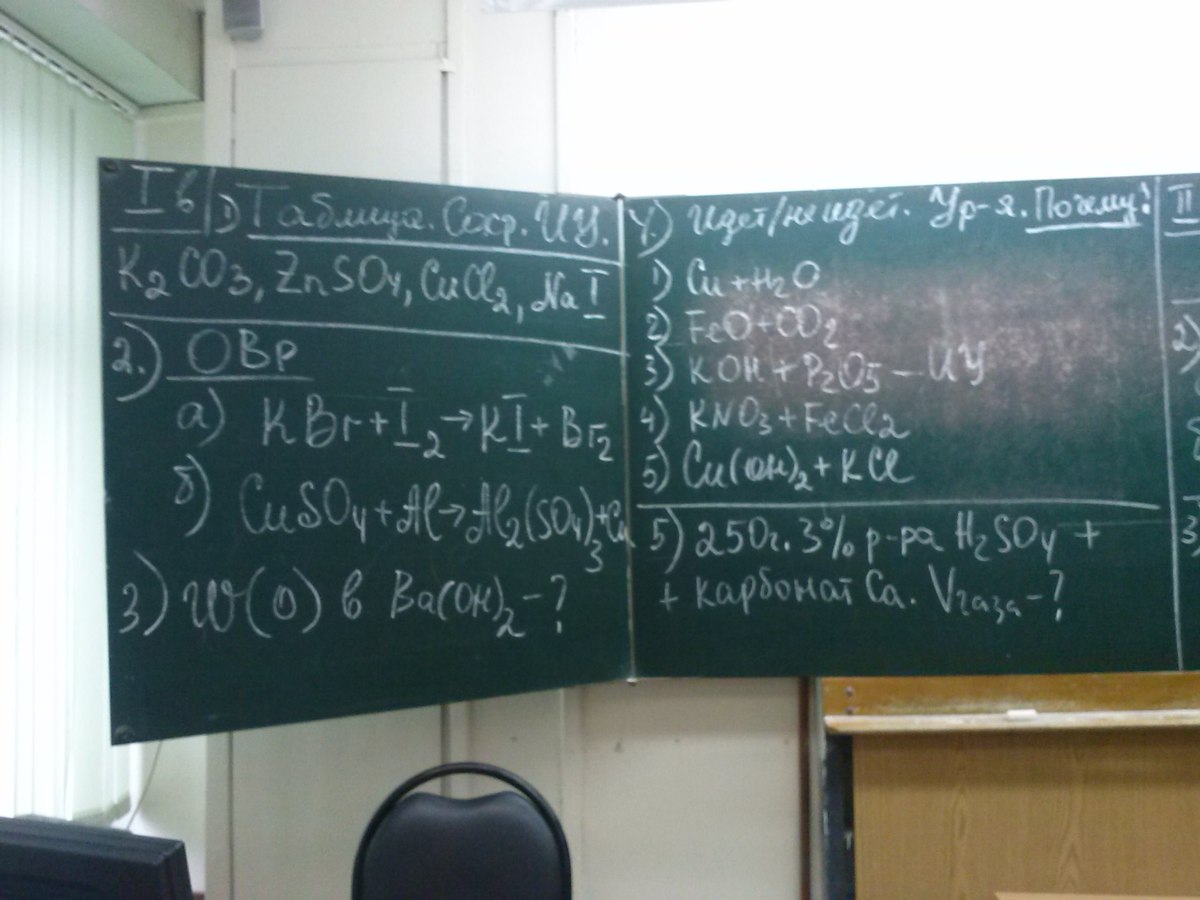 I в 1) Таблица. Сокр. ИУ.
K₂CO₃, ZnSO₄, CuCl₂, NaI
2.) ОВр
а) KBr + I₂ → KI + Br₂
б) CuSO₄ + Al → Al₂(SO₄)₃ + Cu
3) W(O) в Ba(OH)₂ - ?
4.) Идет/не идет. Ур-я. Почему?
1) Cu + H₂O
2) FeO + CO₂
3) KOH + P₂O₅ — ИУ
4) KNO₃ + FeCl₂
5) Cu(OH)₂ + KCl
5) 250г. 3% р-ра H₂SO₄ +
+ карбонат Ca. Vгаза - ?
II
2)
3)